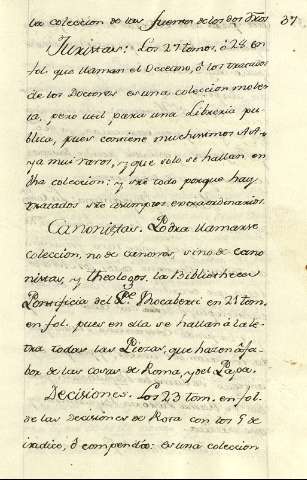 la coleccion de los fueros de los dos Dros 37
Juristas: Los 27 tomos, ó 28 en
fol. que llaman el Oceano, ó los tratados
de los Doctores es una coleccion moles
ta, pero util para una Libreria pu
blica, pues contiene muchisimos AA.
ya mui raros, y que solo se hallan en
dha coleccion; y sre todo porque hay
tratados sre asumptos extraordinarios.
Canonistas. Podra llamarse
coleccion, no de canones, sino de Cano
nistas, y theologos, la Bibliotheca
Pontificia del Pe. Rocaberti en 21 tom.
en fol. pues en ella se hallan á la le
tra todas las Piezas, que hazen á fa
bor de las cosas de Roma, y del Papa.
Decisiones. Los 23 tom. en fol.
de las Decisiones de Rota con los 5 de
indice, ó compendio: es una coleccion